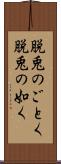 脱兎のごとく
脱兎の如く